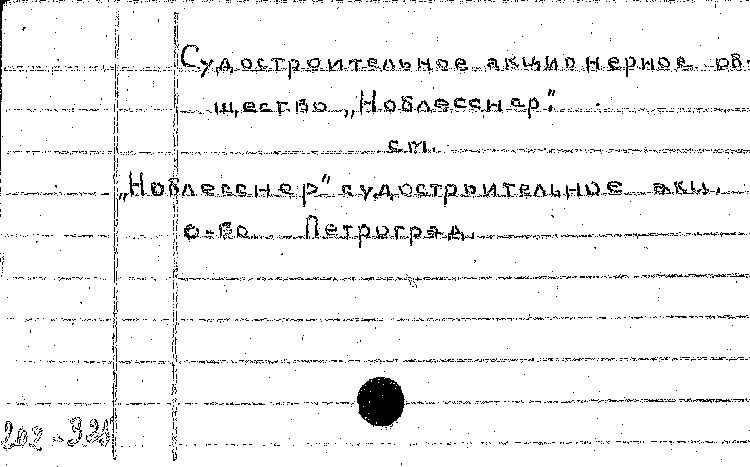 Судостроительное акционерное об-
щество „Ноблесснер".
см.
„Ноблесснер" судостроительное акц.
о-во Петроград.
202-328